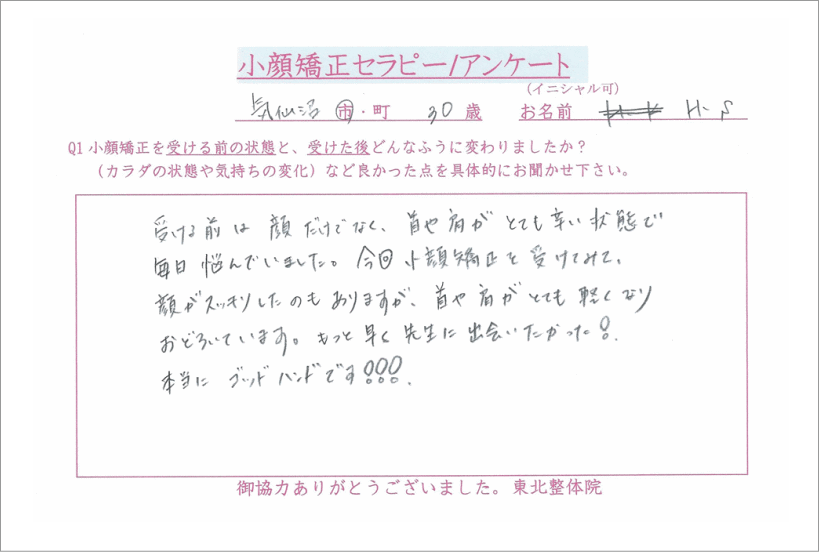 小顔矯正セラピー/アンケート
(イニシャル可)
気仙沼 市・町 30歳 お名前 H.S
Q1 小顔矯正を受ける前の状態と、受けた後どんなふうに変わりましたか？
（カラダの状態や気持ちの変化）など良かった点を具体的にお聞かせ下さい。
受ける前は顔だけでなく、首や肩がとても辛い状態で
毎日悩んでいました。今回小顔矯正を受けてみて、
顔がスッキリしたのもありますが、首や肩がとても軽くなり
おどろいています。もっと早く先生に出会いたかった!.
本当にゴッドハンドです!!!.
御協力ありがとうございました。東北整体院